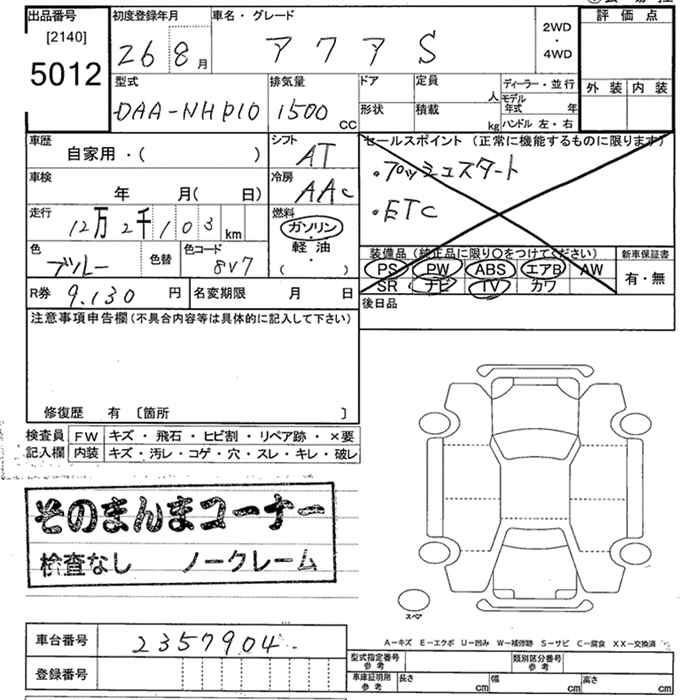 出品番号 初度登録年月 車名・グレード 評価点
[2140] 2WD
5012 26 8月 アクア S ・
4WD
型式 排気量 ドア 定員 ディーラー・並行 外装 内装
人 モデル年式 年
DAA-NHP10 1500 CC 形状 積載 kg ハンドル 左・右
車歴 シフト セールスポイント (正常に機能するものに限ります)
自家用・( ) AT
・プッシュスタート
車検 冷房
年 月( 日) AAC
・ETC
走行 燃料
12万2千103km ガソリン
軽油
色 色替 色コード 装備品 (純正品に限り〇をつけてください) 新車保証書
ブルー 8V7 ・( ) PS PW ABS エアB AW 有・無
SR ナビ TV カワ
R券 9.130 円 名変期限 月 日 後日品
注意事項申告欄(不具合内容等は具体的に記入して下さい)
修復歴 有 〔箇所 〕
検査員 FW キズ・飛石・ヒビ割・リペア跡・×要
記入欄 内装 キズ・汚レ・コゲ・穴・スレ・キレ・破レ
そのまんまコーナー
検査なし ノークレーム
スペア
A−キズ E−エクボ U−凹み W−補修跡 S−サビ C−腐食 XX−交換済
車台番号 2357904
型式指定番号 参考 類別区分番号 参考
登録番号
車庫証明用 参考 長さ cm 幅 cm 高さ cm